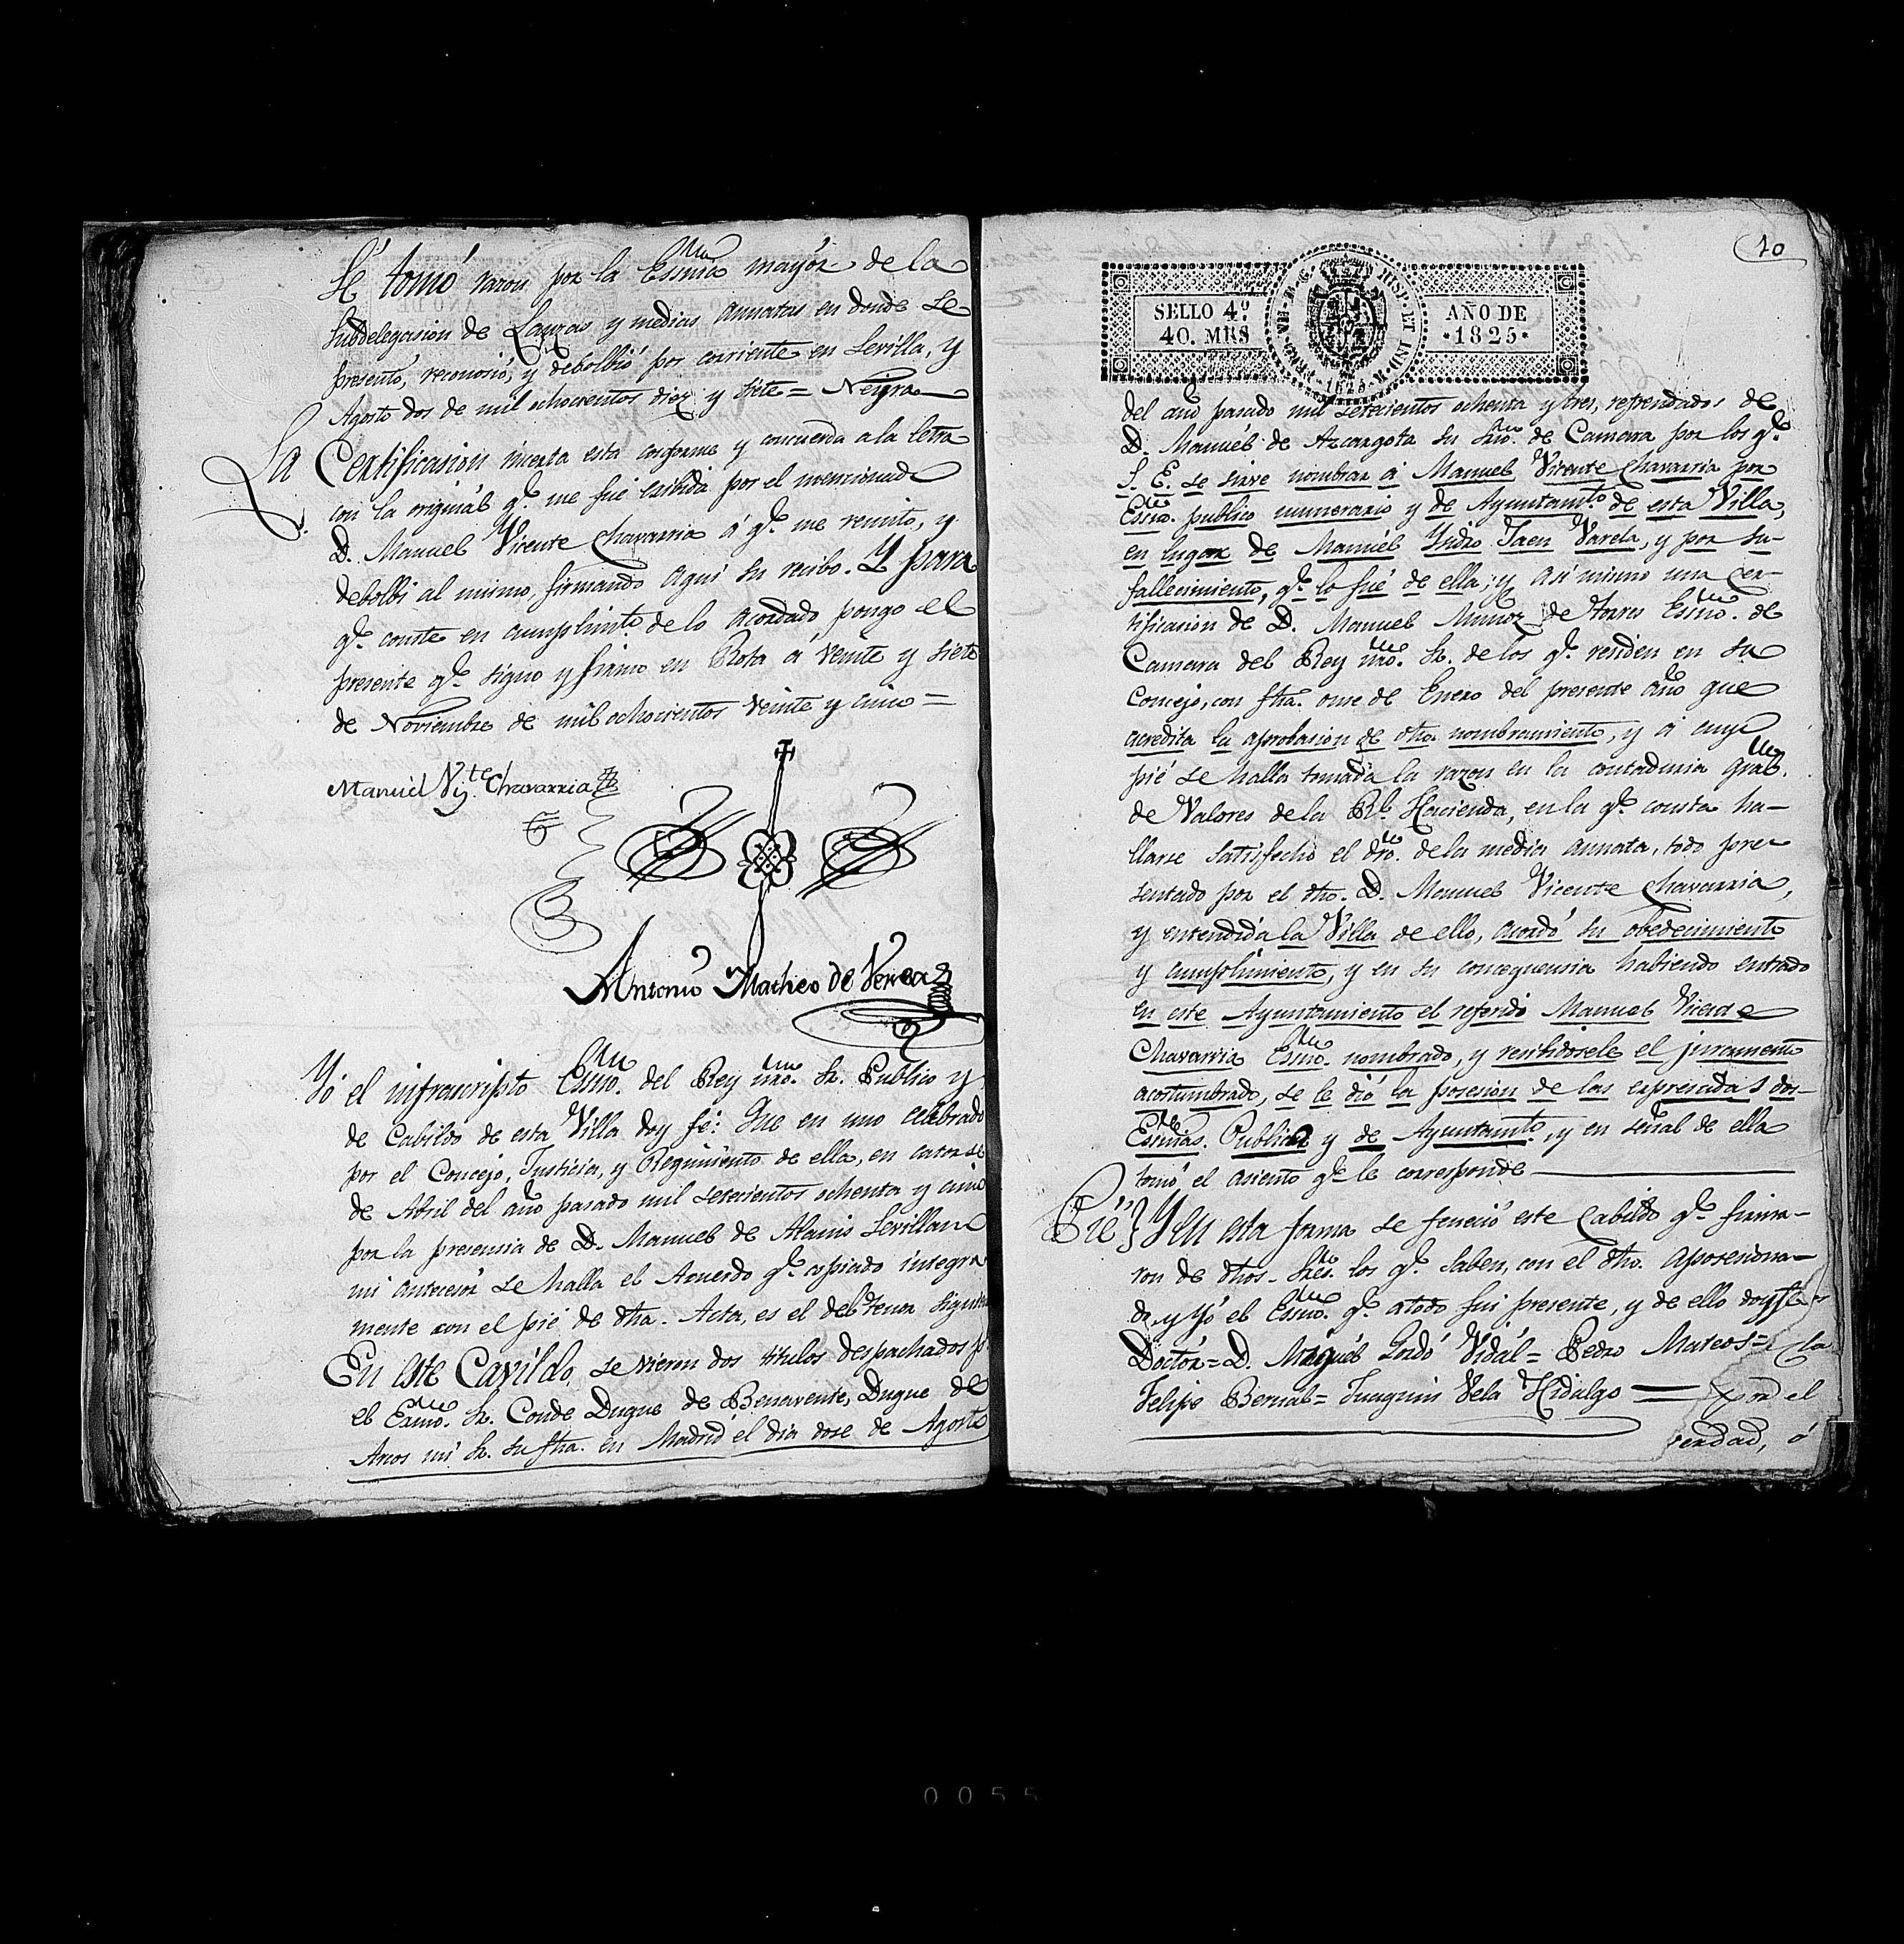 Se tomó razon por la Essnia mayór de la
Subdelegasion de Lanzas y medias annatas en donde se
presentó, reconosió, y debolbió por corriente en Sevilla, y
Agosto dos de mil ochocientos diez y siete = Neyra
La Certificasion inserta está conforme y concuerda a la letra
con la originál qe. me fué exibida por el mencionado
D. Manuel Vicente Chavarria á qe. me remito, y
debolbi al mismo, firmando aqui su recibo. Y para
qe. conste en cumplimto. de lo acordado pongo el
presente qe. signo y firmo en Rota á veinte y siete
de Noviembre de mil ochocientos veinte y cinco =
Manuel Vte. Chavarria
Antonio Matheo de Verea
Yó el infrascripto Essno. del Rey nro. Sr. Publico y
de Cabildo de esta Villa doy fé: Que en uno celebrado
por el Concejo, Justicia, y Regimiento de ella, en catorse
de Abril del año pasado mil setecientos ochenta y cinco
por la presensia de D. Manuel de Alanis Sevillano
mi antecesór se halla el Acuerdo qe. copiado integra
mente con el pié de dha. Acta, es el del tenor siguiente
En este Cavildo se vieron dos titulos despachados pr
el Exmo. Sr. Conde Duque de Benavente, Duque de
Arcos mi Sr. su fha. en Madrid el dia dose de Agosto
10
SELLO 4º.
40. MRS
HISP. ET IND. R.
1825
AÑO DE
1825
del año pasado mil setecientos ochenta y tres, refrendados de
D. Manuél de Azcargota su Srio. de Camara por los qe.
S. E. se sirve nombrar á Manuel Vicente Chavarria por
Essno. publico numerario y de Ayuntamto. de esta Villa,
en lugar de Manuel Ysidro Jaen Varela, y por su
fallecimiento, qe. lo fué de ella; y asi mismo una Cer-
tificasion de D. Manuel Muñoz de Torres Essno. de
Camara del Rey nro. Sr. de los qe. residen en su
Concejo, con fha. onse de Enero del presente año que
acredita la aprobasion de dho. nombramiento, y á cuyo
pié se halla tomada la razon en la contaduria gral.
de Valores de la Rl. Hacienda, en la qe. consta ha-
llarse satisfecho el dro. de la media annata, todo pre
sentado por el dho. D. Manuel Vicente Chavarria,
y entendida la Villa de ello, acordó su obedecimiento
y cumplimiento, y en su conceguensia habiendo entrado
en este Ayuntamiento el referido Manuel Vicente
Chavarria Essno. nombrado, y recibidosele el juramento
acostumbrado, se le dió la posesion de las expresadas dos
Essnias. Publica y de Ayuntamto., y en señal de ella
tomó el asiento qe. le corresponde
Pié} Y en esta forma se feneció este Cabildo qe. firma-
ron de dhos. Sres. los qe. saben, con el dho. aposesiona-
do, y yó el Essno. qe. a todo fui presente, y de ello doy fé
Doctór = D. Miguel Lordó Vidál = Pedro Mateos =
Felipe Bernal = Juaquin Vela Hidalgo